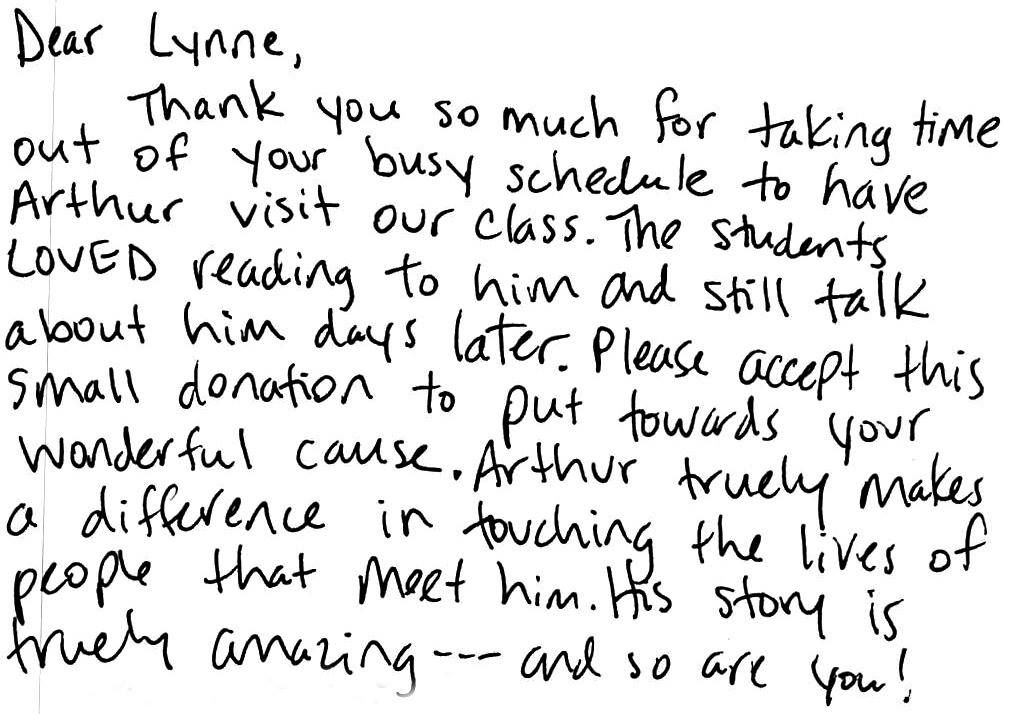 Dear Lynne,
Thank you so much for taking time
out of your busy schedule to have
Arthur visit our class. The students
LOVED reading to him and still talk
about him days later. Please accept this
small donation to put towards your
wonderful cause. Arthur truely makes
a difference in touching the lives of
people that meet him. His story is
truely amazing --- and so are you!